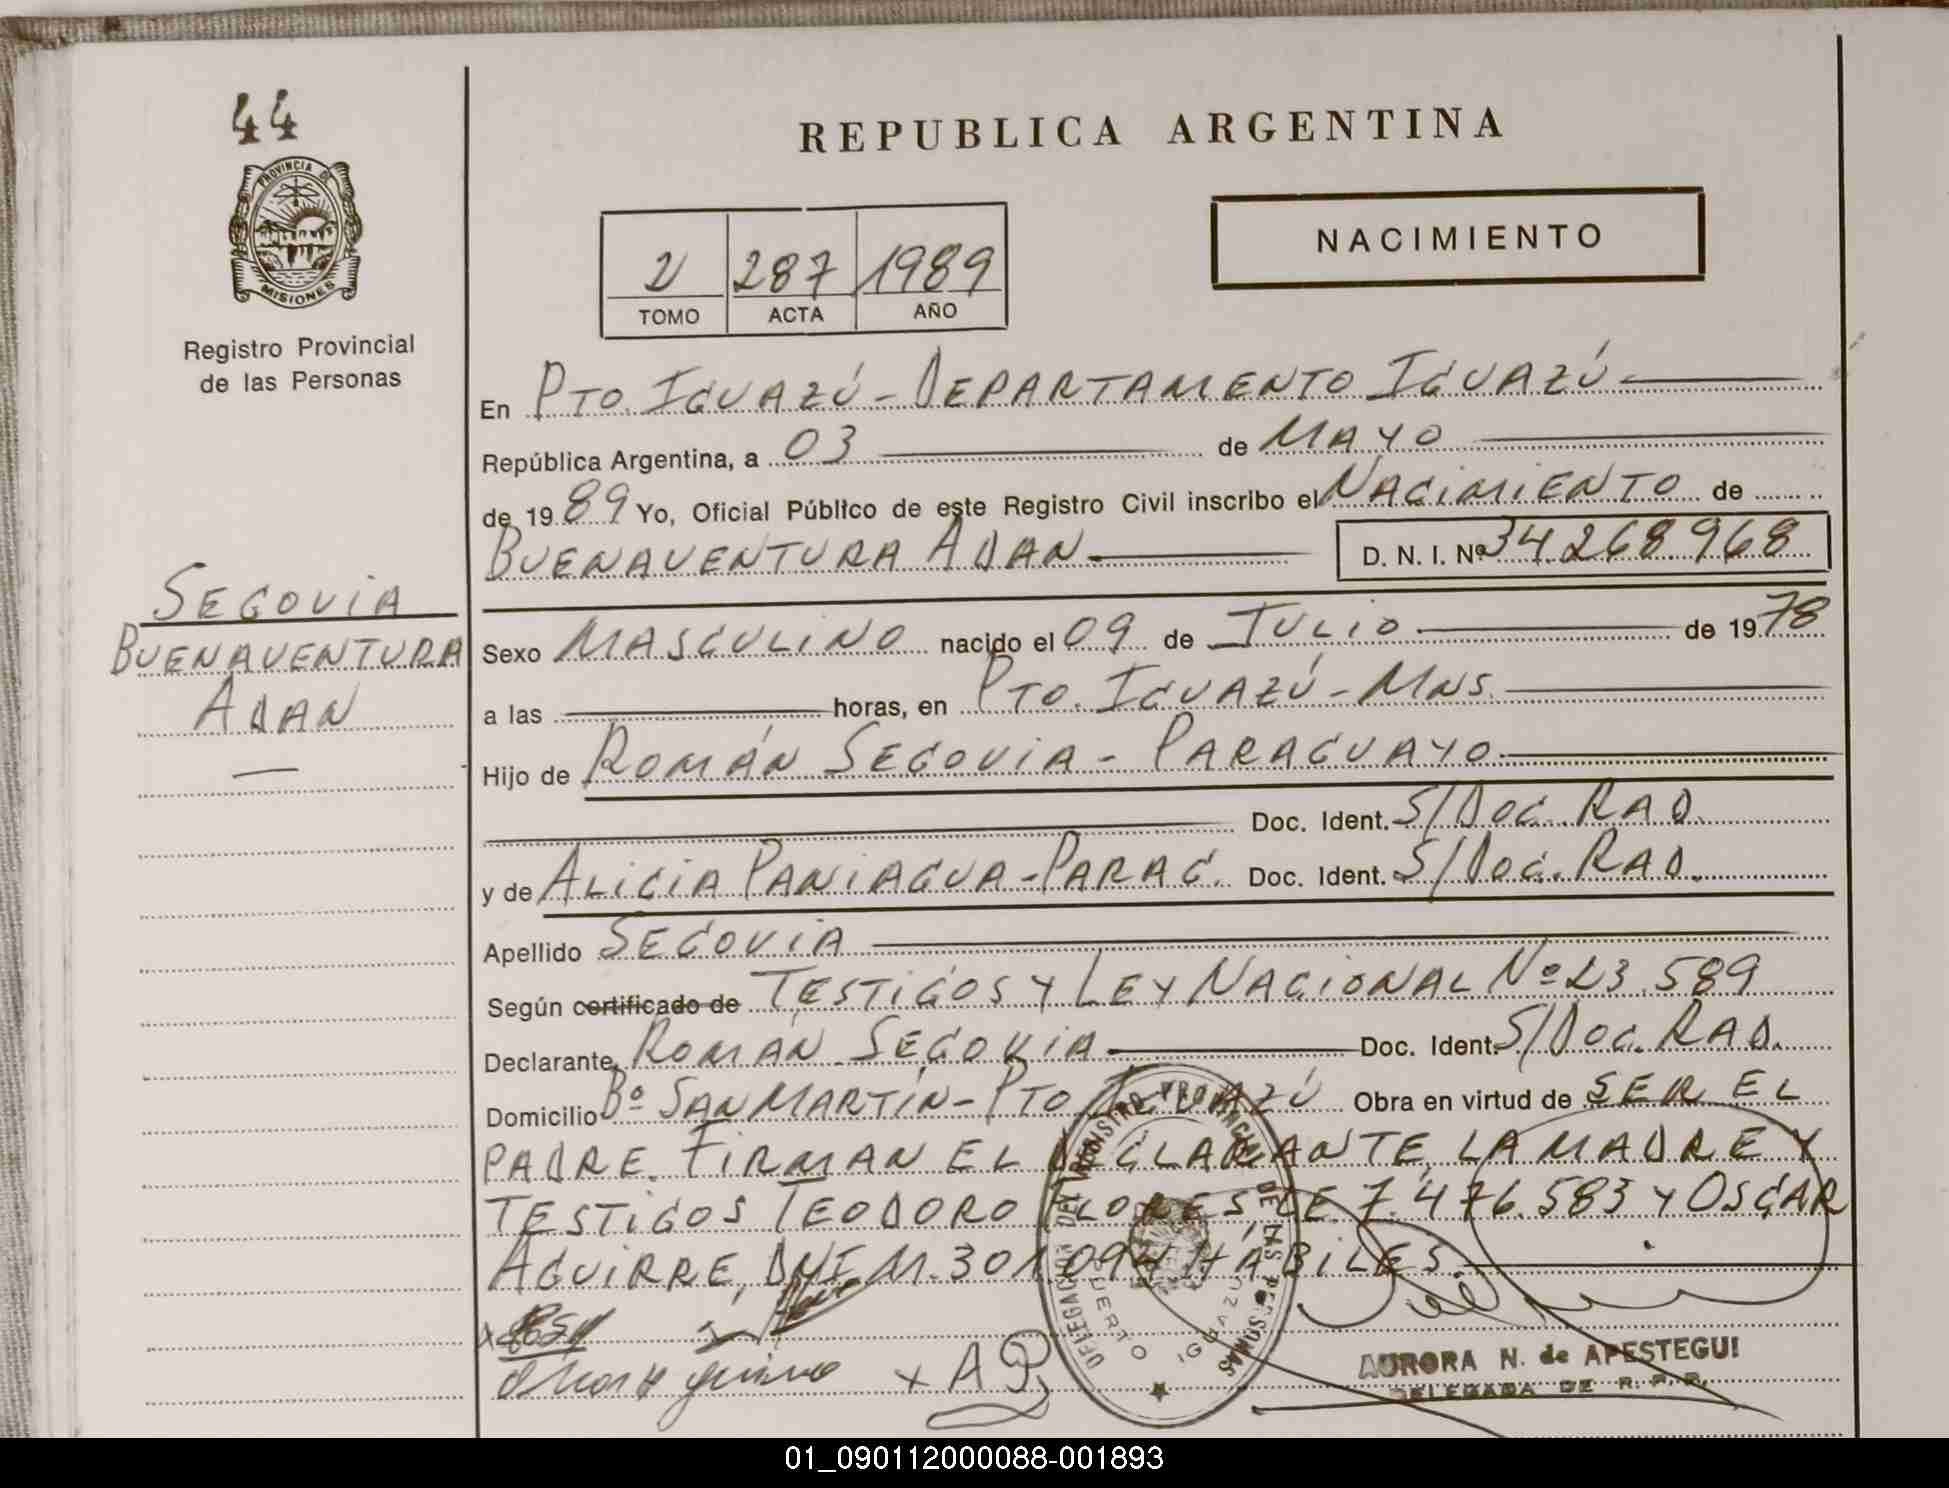 44
PROVINCIA DE
MISIONES
Registro Provincial
de las Personas
SEGOVIA
BUENAVENTURA
ADAN
REPUBLICA ARGENTINA
NACIMIENTO
2 287 1989
TOMO ACTA AÑO
En PTO. IGUAZÚ - DEPARTAMENTO IGUAZÚ
República Argentina, a 03 de MAYO
de 1989 Yo, Oficial Público de este Registro Civil inscribo el NACIMIENTO de
BUENAVENTURA ADAN D. N. I. Nº 34.268.968
Sexo MASCULINO nacido el 09 de JULIO de 1978
a las horas, en PTO. IGUAZÚ - MNS.
Hijo de ROMÁN SEGOVIA - PARAGUAYO
Doc. Ident. S/DOC. RAD.
y de ALICIA PANIAGUA - PARAG. Doc. Ident. S/DOC. RAD.
Apellido SEGOVIA
Según certificado de TESTIGOS Y LEY NACIONAL Nº 23.589
Declarante ROMÁN SEGOVIA Doc. Ident. S/DOC. RAD.
Domicilio Bº SAN MARTÍN - PTO IGUAZÚ Obra en virtud de SER EL
PADRE. FIRMAN EL DECLARANTE, LA MADRE Y
TESTIGOS TEODORO FLORES LE. 7.476.583 Y OSCAR
AGUIRRE, DNI 11.301.094 HÁBILES.
x AP
DELEGACION DEL REGISTRO PROVINCIAL DE LAS PERSONAS
PUERTO IGUAZU
AURORA N. de APESTEGUI
DELEGADA DE R. P. P.
01_090112000088-001893